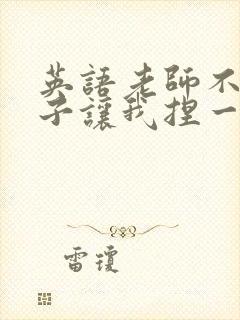 英語老師不
子讓我捏一
雷瓊